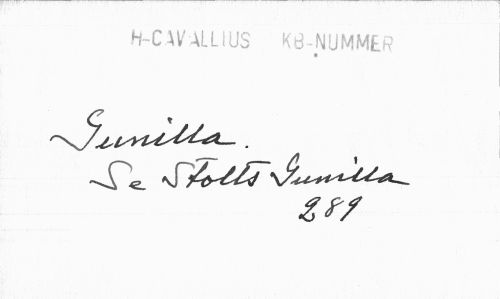 H-CAVALLIUS KB-NUMMER
Gunilla.
Se Stolts Gunilla
289